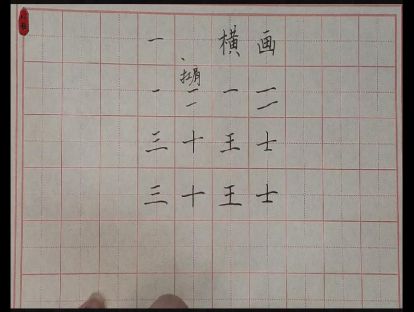 一 横画
一 二 一 二
三十王士
三十王士